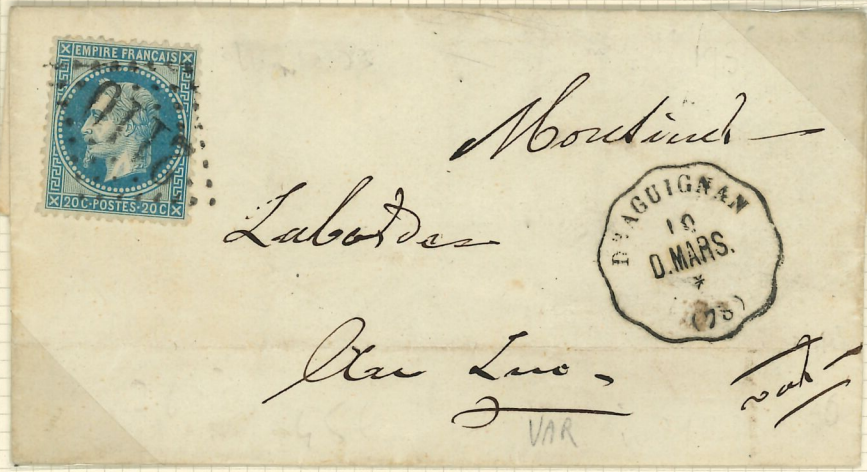 EMPIRE FRANÇAIS
20C·POSTES·20C
2110
Monsieur
Labordes
DRAGUIGNAN
10
D.MARS.
*
(78)
Au Luc
Var
VAR